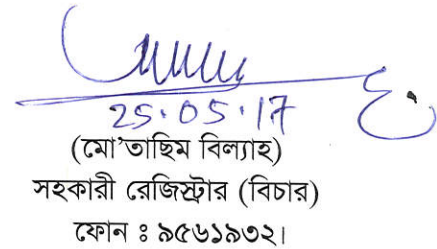 25.05.17
(মো'তাছিম বিল্যাহ)
সহকারী রেজিস্ট্রার (বিচার)
ফোন ঃ ৯৫৬১৯৩২।